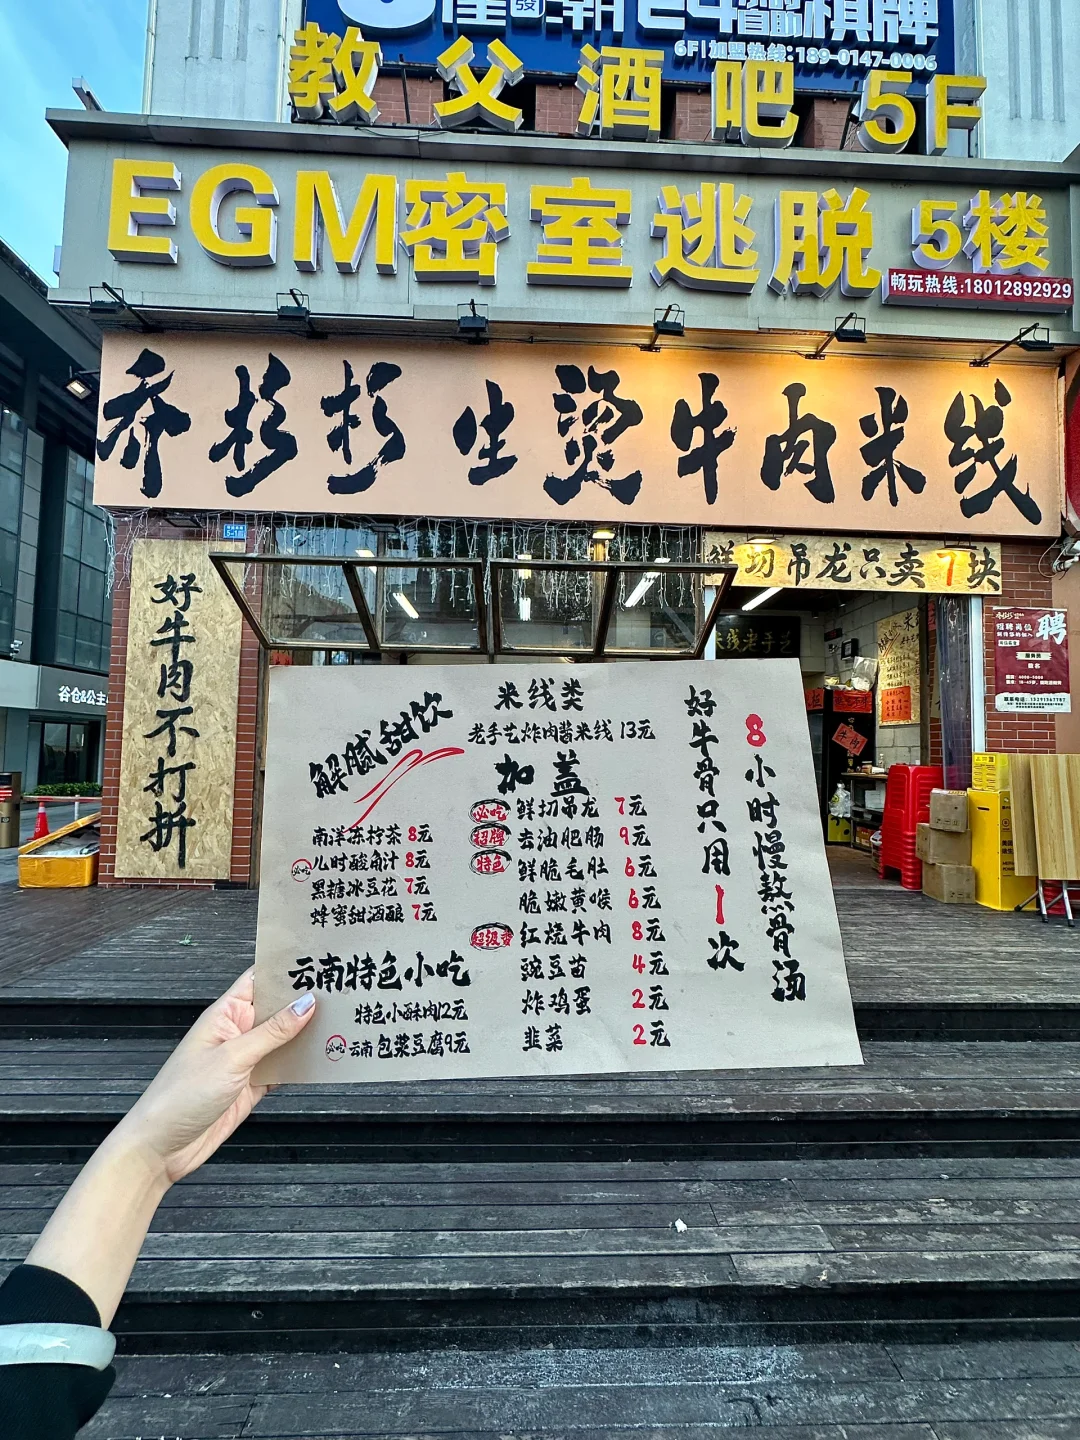 棋牌
6F|加盟热线:189-0147-0006
教父酒吧 5F
EGM密室逃脱 5楼
畅玩热线:18012892929
乔杉杉 生烫牛肉米线
鲜切吊龙只卖7块
好牛肉不打拼
米线老手艺
聘
招聘岗位
服务员
牛肉
谷仓&公主
解腻甜饮
南洋冻柠茶 8元
必吃 儿时酸角汁 8元
黑糖冰豆花 7元
蜂蜜甜酒酿 7元
云南特色小吃
特色小酥肉12元
必吃 云南包浆豆腐9元
米线类
老手艺炸肉酱米线 13元
加盖
必吃 鲜切吊龙 7元
招牌 去油肥肠 9元
特色 鲜脆毛肚 6元
脆嫩黄喉 6元
红烧牛肉 8元
豌豆苗 4元
炸鸡蛋 2元
韭菜 2元
好牛骨只用1次
8小时慢熬骨汤